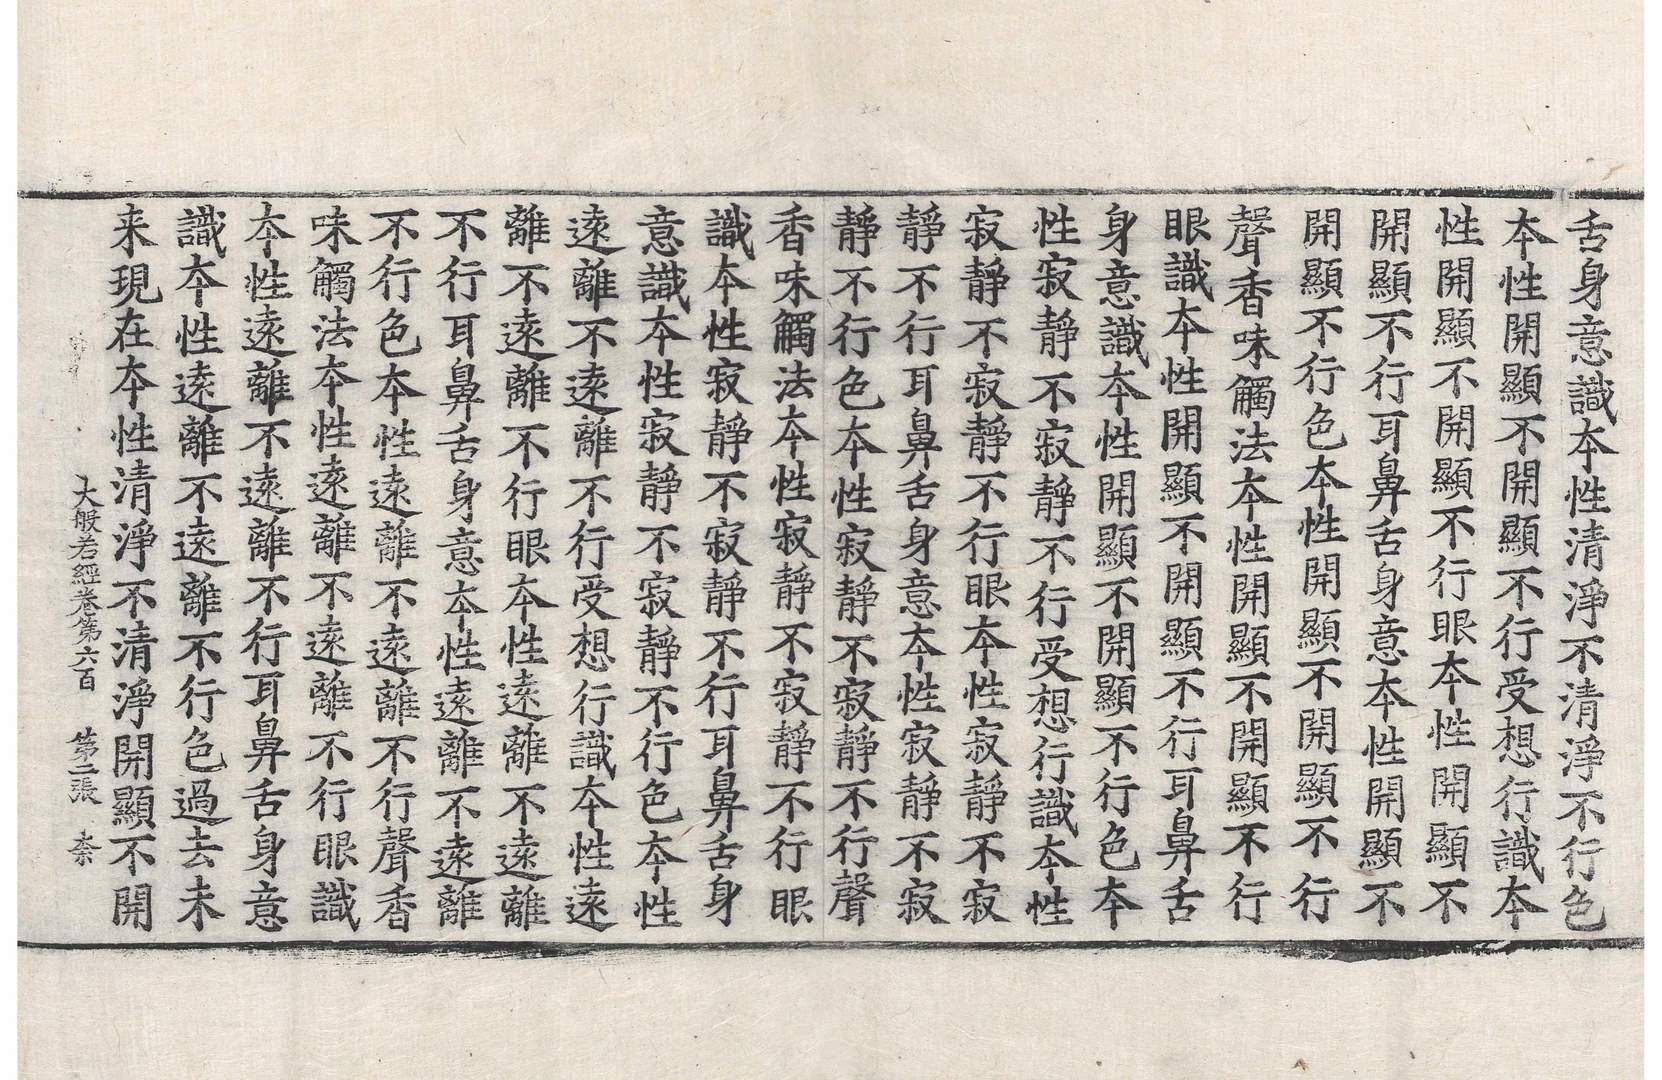 舌身意識本性清淨不清淨不行色
本性開顯不開顯不行受想行識本
性開顯不開顯不行眼本性開顯不
開顯不行耳鼻舌身意本性開顯不
開顯不行色本性開顯不開顯不行
聲香味觸法本性開顯不開顯不行
眼識本性開顯不開顯不行耳鼻舌
身意識本性開顯不開顯不行色本
性寂靜不寂靜不行受想行識本性
寂靜不寂靜不行眼本性寂靜不寂
靜不行耳鼻舌身意本性寂靜不寂
靜不行色本性寂靜不寂靜不行聲
香味觸法本性寂靜不寂靜不行眼
識本性寂靜不寂靜不行耳鼻舌身
意識本性寂靜不寂靜不行色本性
遠離不遠離不行受想行識本性遠
離不遠離不行眼本性遠離不遠離
不行耳鼻舌身意本性遠離不遠離
不行色本性遠離不遠離不行聲香
味觸法本性遠離不遠離不行眼識
本性遠離不遠離不行耳鼻舌身意
識本性遠離不遠離不行色過去未
来現在本性清淨不清淨開顯不開
大般若經卷第六百 第二張 柰